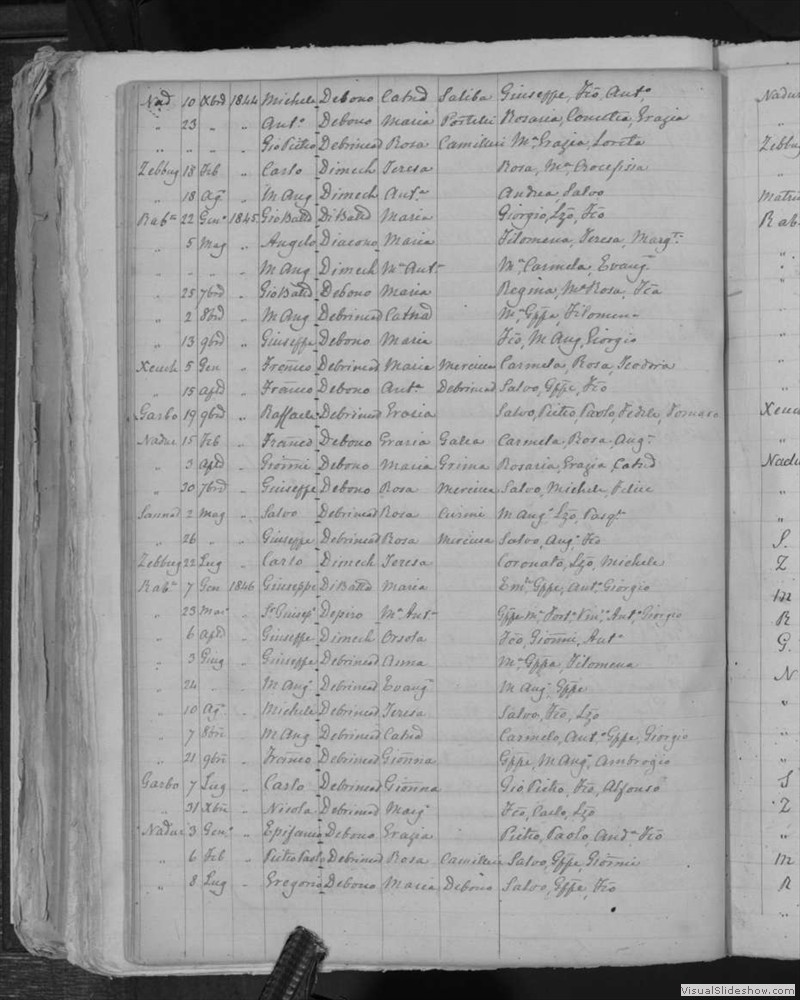 Nad 10 Xbrd 1844 Michele Debono Catnd Saliba Giuseppe, Fco, Anto
„ 23 „ „ Anto Debono Maria Portelli Rosaria, Concetta, Grazia
„ „ „ „ Gio Pietro Debrincad Rosa Camilleri Ma Grazia, Loreta
Zebbug 18 Feb „ Carlo Dimech Teresa Rosa, Ma Crocefissa
„ 18 Ago „ M Ang Dimech Anta Andrea, Salvo
Raba 22 Geno 1845 Gio Battd Di Battd Maria Giorgio, Lzo, Fco
„ 5 Mag „ Angelo Diacono Maria Filomena, Teresa, Margta
„ „ „ M Ang Dimech Ma Anta Ma Carmela, Evang
„ 25 7brd „ Gio Battd Debono Maria Regina, Ma Rosa, Fca
„ 2 8brd „ M Ang Debrincad Catnd Ma Gppa, Filomena
„ 13 9brd „ Giuseppe Debono Maria Fco, M Ang, Giorgio
Xeuch 5 Gen „ Franco Debrincad Maria Mercieca Carmela, Rosa, Teodora
„ 15 Apld „ Franco Debono Anta Debrincad Salvo, Gppe, Fco
Garbo 19 9brd „ Raffaele Debrincad Grazia Salvo, Pietro, Paolo, Fedele, Tomaso
Nadur 15 Feb „ Franco Debono Grazia Galea Carmela, Rosa, Ang
„ 3 Apld „ Gionni Debono Maria Grima Rosaria, Grazia, Catnd
„ 30 7brd „ Giuseppe Debono Rosa Mercieca Salvo, Michele, Felice
Sannad 2 Mag „ Salvo Debrincad Rosa Curmi M Ang, Lzo, Pasqe
„ 26 „ „ Giuseppe Debrincad Rosa Mercieca Salvo, Ang, Fco
Zebbug 22 Lug „ Carlo Dimech Teresa Coronato, Lzo, Michele
Raba 7 Gen 1846 Giuseppe Di Battd Maria Gppe, Anto, Giorgio
„ 23 Mar „ Depiro Ma Anta Anto Giorgio
„ 6 Apld „ Giuseppe Dimech Orsola Fco, Gionni, Anto
„ 3 Giug „ Giuseppe Debrincad Anna Ma Gppa, Filomena
„ 24 „ „ M Ang Debrincad Evang M Ang, Gppe
„ 10 Ago „ Michele Debrincad Teresa Salvo, Fco, Lzo
„ 7 8bri „ M Ang Debrincad Catnd Carmelo, Anto, Gppe, Giorgio
„ 21 9bri „ Franco Debrincad Gionna Gppe, M Ang, Ambrogio
Garbo 7 Lug „ Carlo Debrincad Gionna Gio Pietro, Fco, Alfonso
„ 31 Xbri „ Nicola Debrincad Marg Fco, Carlo, Lzo
Nadur 3 Geno „ Epifanio Debono Grazia Pietro, Paolo, Anda, Fco
„ 6 Feb „ Pietro Paolo Debrincad Rosa Camilleri Salvo, Gppe, Gionni
„ 8 Lug „ Gregorio Debono Maria Debono Salvo, Gppe, Fco
Nadur
Zebbug
Rab
Xeuc
Nadu
S.
Z
m
R
G.
N
S
Z
m
R
VisualSlideshow.com